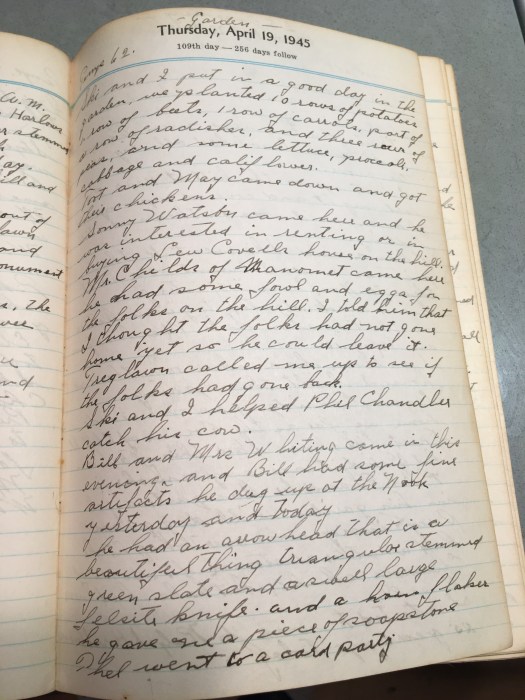 - Garden -
Thursday, April 19, 1945
109th day — 256 days follow
62.
Ski and I put in a good day in the
garden, we planted 10 rows of potatoes
1 row of beets, 1 row of carrots, part of
a row of radishes, and three rows of
peas, and some lettuce,
cabbage and califlower.
and May came down and got
chickens.
Sonny Watson came here and he
was interested in renting or in
buying Lew Covells house on the hill.
Mr. Childs of Manomet came here
he had some fowl and eggs for
the folks on the hill. I told him that
I thought the folks had not gone
home yet so he could leave it.
Treglawn called me up to see if
the folks had gone back.
Ski and I helped Phil Chandler
catch his cow.
Bill and Mrs Whiting came in this
evening and Bill had some fine
artifacts he dug up at the Nook
yesterday and today
he had an arow head that is a
beautiful thing triangular stemmed
green slate and a swell large
felsite knife. and a flaker
he gave me a piece of soapstone
Thel went to a card party
A. M.
Harlow
stemmed
ay.
and
out of
lawn
and
onument
s. The
and